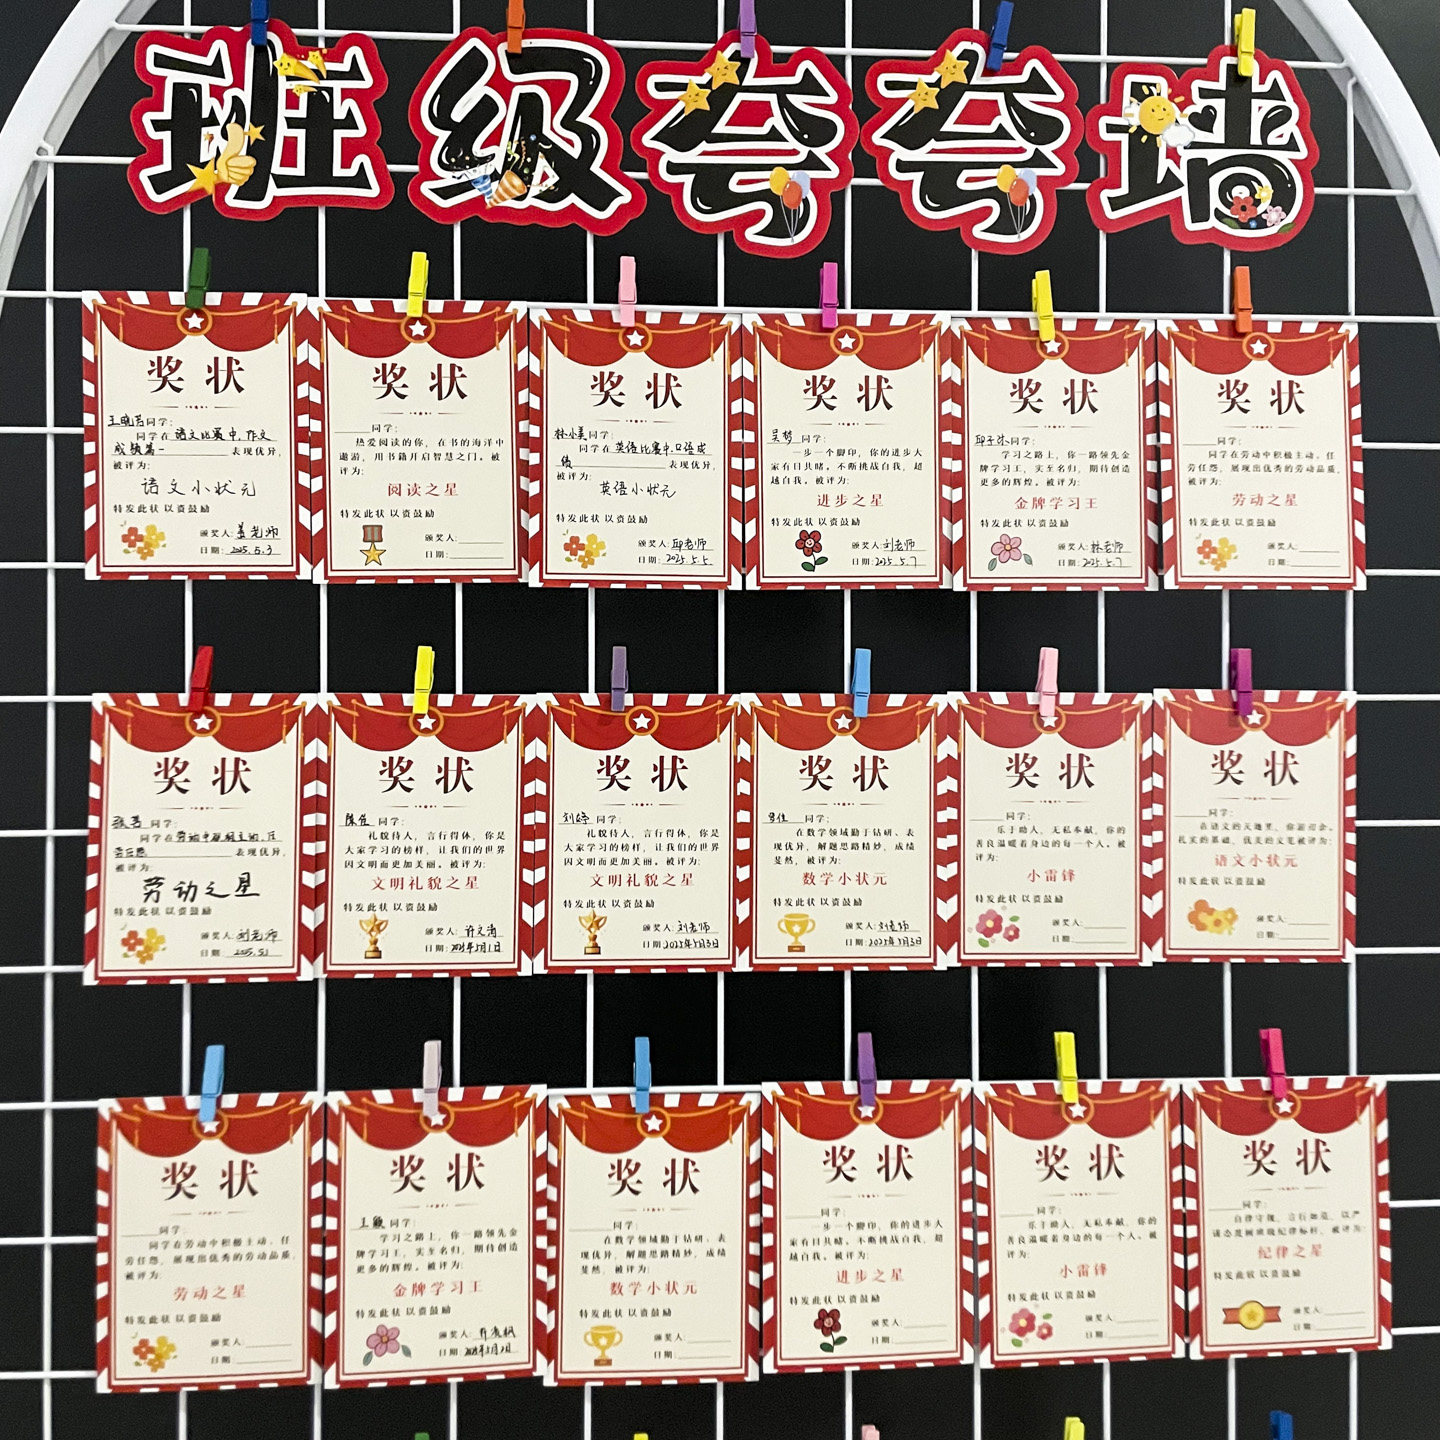 班级夸夸墙
奖状
王晓芳同学:
同学在 语文比赛中,作文
成绩第一 表现优异,
被评为:
语文小状元
特发此状 以资鼓励
颁奖人: 姜老师
日期: 2025.5.3
奖状
同学:
热爱阅读的你,在书的海洋中
遨游,用书籍开启智慧之门。被
评为:
阅读之星
特发此状 以资鼓励
颁奖人:
日期:
奖状
林小美同学:
同学在 英语比赛中口语成
绩 表现优异,
被评为:
英语小状元
特发此状 以资鼓励
颁奖人: 邱老师
日期: 2025.5.5
奖状
吴梦 同学:
一步一个脚印,你的进步大
家有目共睹。不断挑战自我,超
越自我。被评为:
进步之星
特发此状 以资鼓励
颁奖人: 刘老师
日期: 2025.5.7
奖状
邱子沐同学:
学习之路上,你一路领先金
牌学习王,实至名归,期待创造
更多的辉煌。被评为:
金牌学习王
特发此状 以资鼓励
颁奖人: 林老师
日期: 2025.5.7
奖状
同学:
同学在劳动中积极主动、任
劳任怨,展现出优秀的劳动品质,
被评为:
劳动之星
特发此状 以资鼓励
颁奖人:
日期:
奖状
张芳 同学:
同学在 劳动中积极主动、任
劳任怨 表现优异,
被评为:
劳动之星
特发此状 以资鼓励
颁奖人: 刘老师
日期: 2025.5.1
奖状
陈佳 同学:
礼貌待人,言行得体,你是
大家学习的榜样,让我们的世界
因文明而更加美丽。被评为:
文明礼貌之星
特发此状 以资鼓励
颁奖人: 许文涛
日期: 2025年5月1日
奖状
刘婷 同学:
礼貌待人,言行得体,你是
大家学习的榜样,让我们的世界
因文明而更加美丽。被评为:
文明礼貌之星
特发此状 以资鼓励
颁奖人: 刘老师
日期: 2025年5月3日
奖状
同学:
在数学领域勤于钻研、表
现优异,解题思路精妙,成绩
斐然,被评为:
数学小状元
特发此状 以资鼓励
颁奖人: 刘老师
日期: 2025年5月3日
奖状
同学:
乐于助人,无私奉献,你的
善良温暖着身边的每一个人。被
评为:
小雷锋
特发此状 以资鼓励
颁奖人:
日期:
奖状
同学:
在语文的天地里,你
扎实的基础,优美的文笔被评为:
语文小状元
特发此状 以资鼓励
颁奖人:
日期:
奖状
同学:
同学在劳动中积极主动、任
劳任怨,展现出优秀的劳动品质,
被评为:
劳动之星
特发此状 以资鼓励
颁奖人:
日期:
奖状
王颖 同学:
学习之路上,你一路领先金
牌学习王,实至名归,期待创造
更多的辉煌。被评为:
金牌学习王
特发此状 以资鼓励
颁奖人:
日期: 2025年5月2日
奖状
同学:
在数学领域勤于钻研、表
现优异,解题思路精妙,成绩
斐然,被评为:
数学小状元
特发此状 以资鼓励
颁奖人:
日期:
奖状
同学:
一步一个脚印,你的进步大
家有目共睹。不断挑战自我,超
越自我。被评为:
进步之星
特发此状 以资鼓励
颁奖人:
日期:
奖状
同学:
乐于助人,无私奉献,你的
善良温暖着身边的每一个人。被
评为:
小雷锋
特发此状 以资鼓励
颁奖人:
日期:
奖状
同学:
自律守规,言行如范,以严
谨态度树班级纪律标杆,被评为:
纪律之星
特发此状 以资鼓励
颁奖人:
日期: